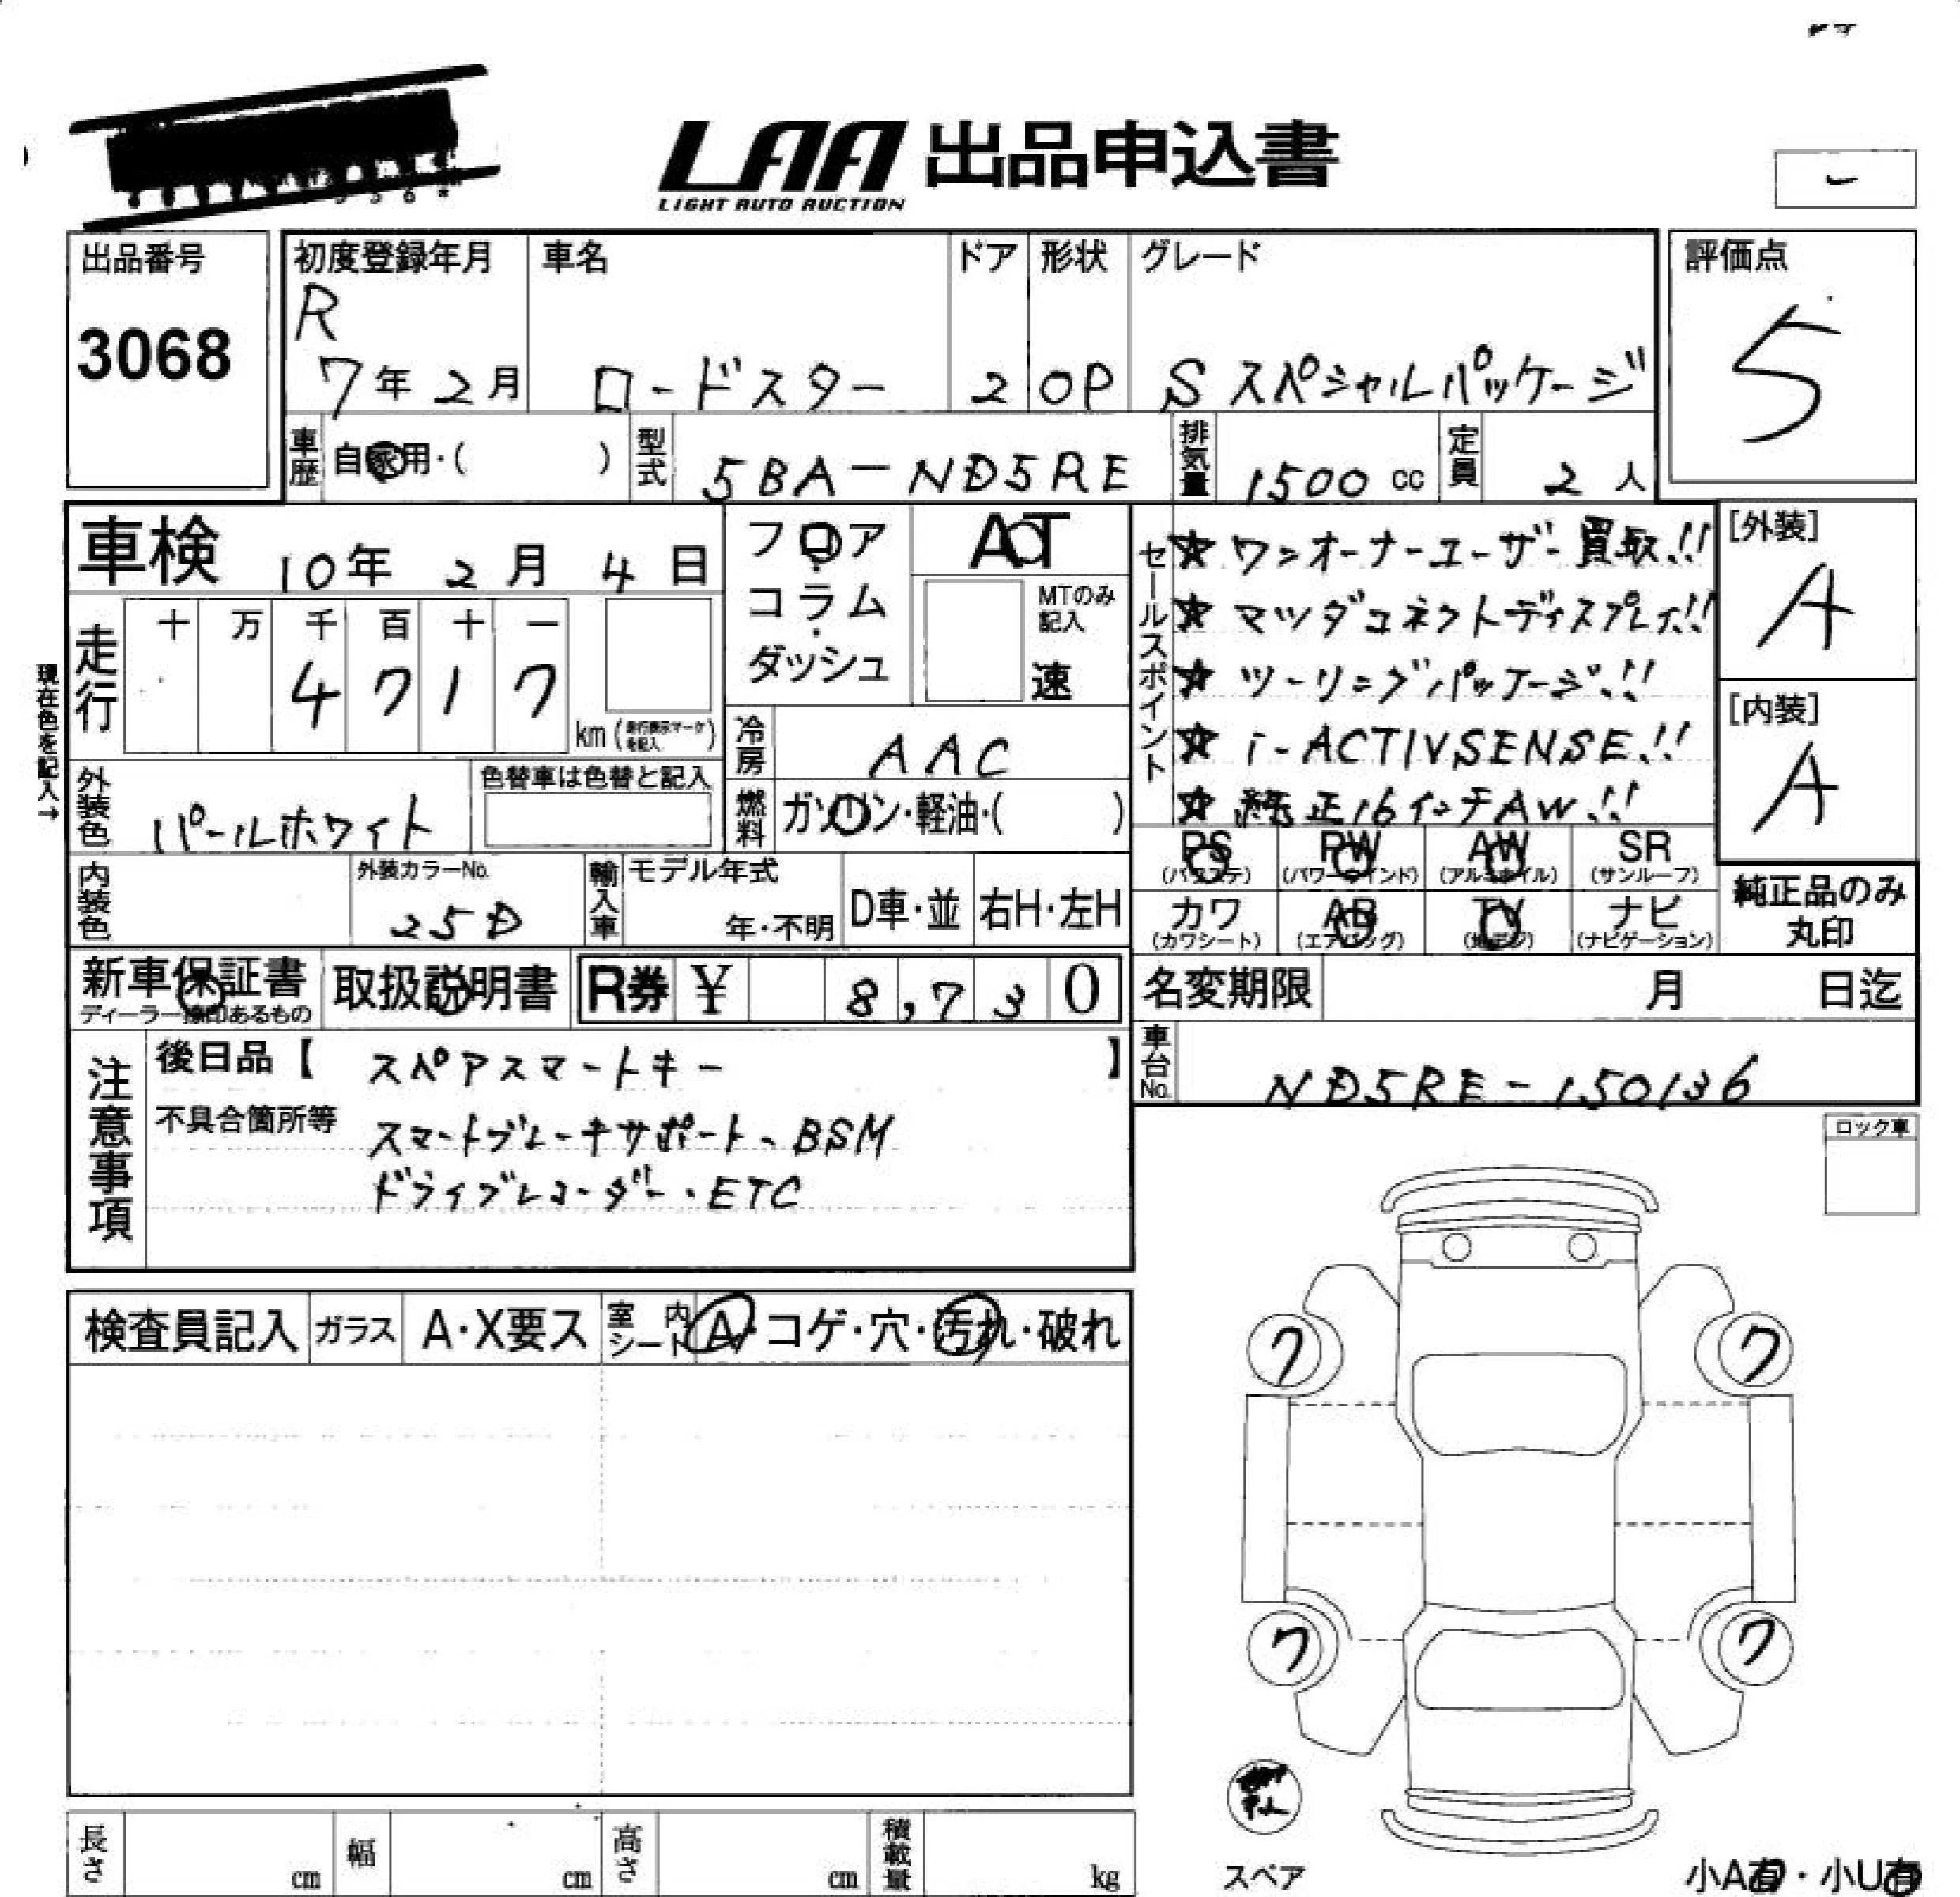 LAA 出品申込書
LIGHT AUTO AUCTION
出品番号
3068
初度登録年月
R
7年2月
車名
ロードスター
ドア
2
形状
OP
グレード
S スペシャルパッケージ
評価点
5
車歴
自家用・( )
型式
5BA-ND5RE
排気量
1500 cc
定員
2 人
車検 10年 2月 4日
フロア
・
コラム
・
ダッシュ
AT
MTのみ
記入
速
セールスポイント
☆ ワンオーナーユーザー買取!!
☆ マツダコネクトディスプレイ!!
☆ ツーリングパッケージ!!
☆ i-ACTIVSENSE!!
☆ 純正16インチAW!!
[外装]
A
[内装]
A
現在色を記入→
走行
十 万 千 百 十 一
4 7 1 7
km (走行表示マーク
を記入)
冷房
AAC
外装色
パールホワイト
色替車は色替と記入
燃料
ガソリン・軽油・( )
PS
(パワステ)
PW
(パワーウインド)
AW
(アルミホイル)
SR
(サンルーフ)
カワ
(カワシート)
AB
(エアバッグ)
TV
(地デジ)
ナビ
(ナビゲーション)
純正品のみ
丸印
内装色
外装カラーNo.
25D
輸入車
モデル年式
年・不明
D車・並
右H・左H
新車保証書
ディーラー捺印あるもの
取扱説明書
R券 ¥ 8,730
名変期限 月 日迄
車台No.
ND5RE-150136
注意事項
後日品【 スペアスマートキー 】
不具合箇所等
スマートブレーキサポート、BSM
ドライブレコーダー、ETC
ロック車
検査員記入
ガラス
A・X要ス
室内
シート
A・コゲ・穴・汚れ・破れ
ワ
ワ
ワ
ワ
スペア
長さ cm
幅 cm
高さ cm
積載量 kg
小A有・小U有